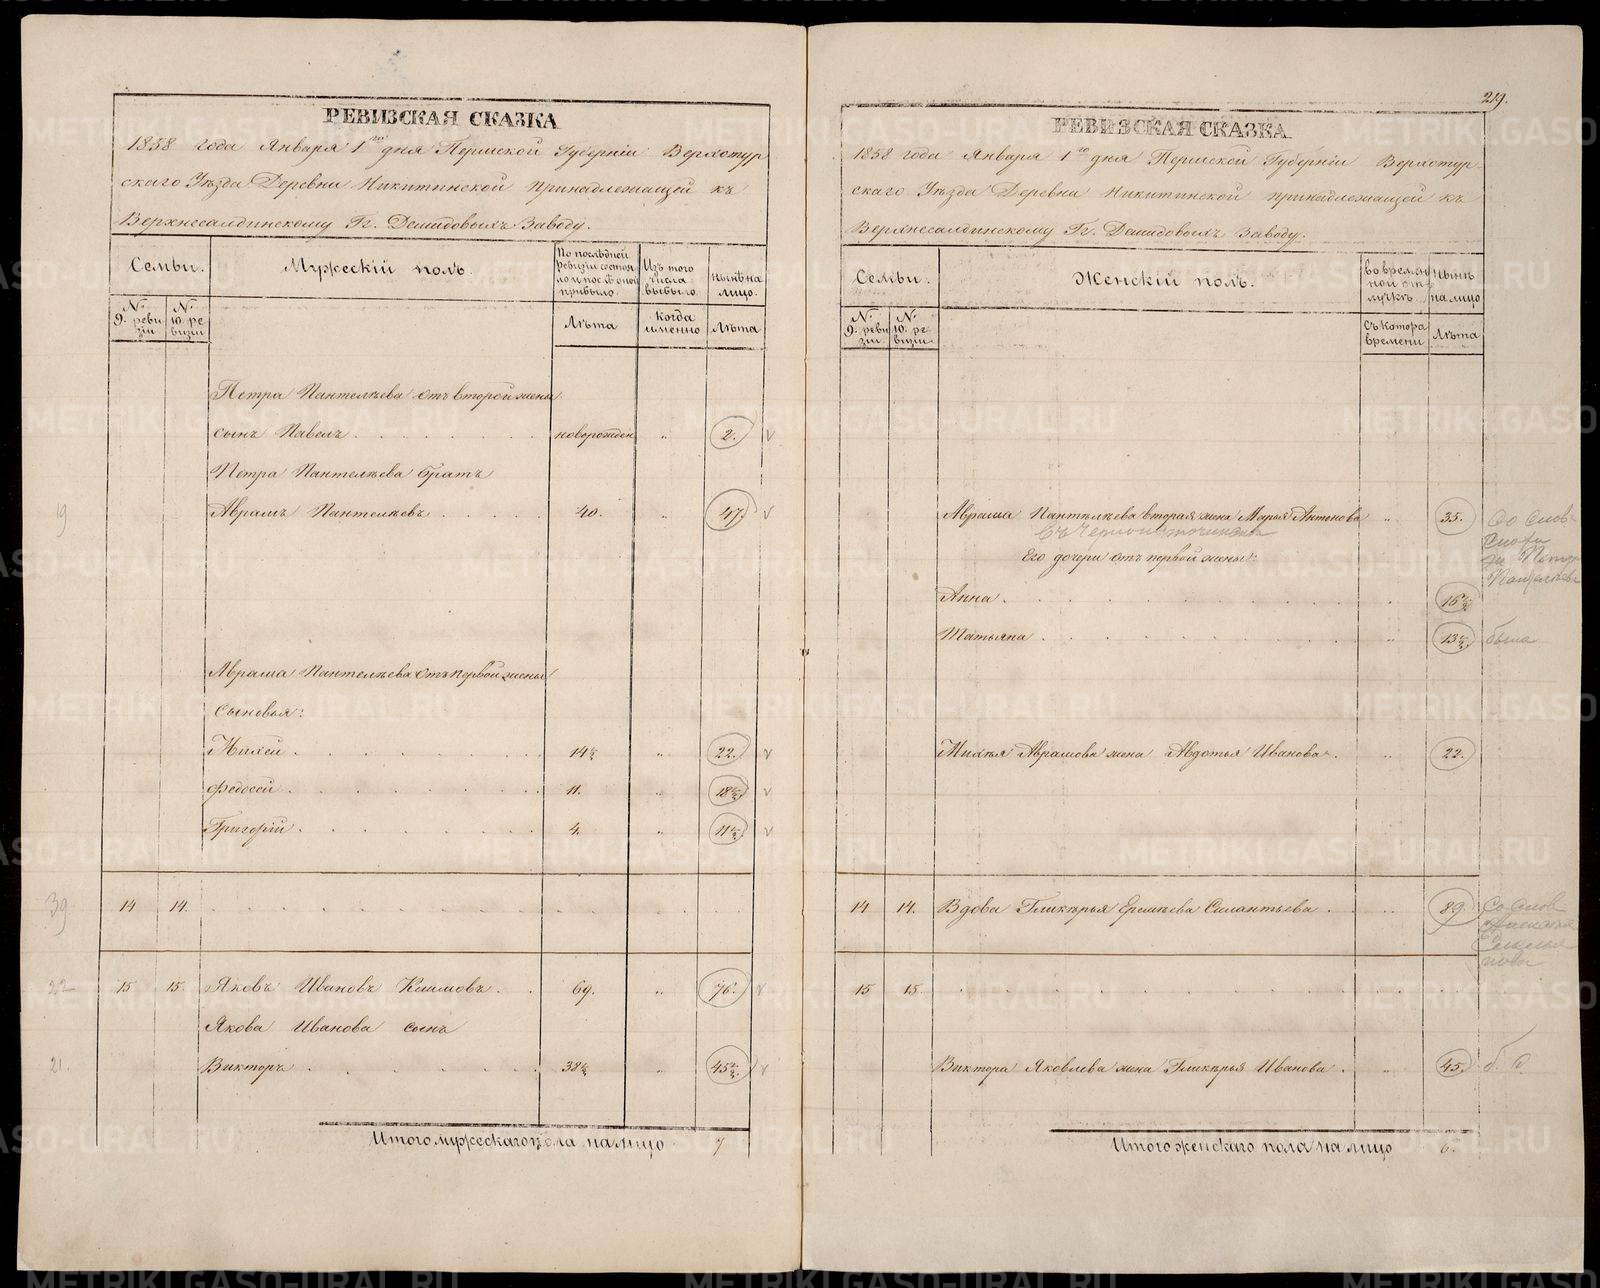 РЕВИЗСКАЯ СКАЗКА
1858 года Января 1го дня Пермской Губерніи Верхотур
скаго Уѣзда Деревни Никитинской принадлежащей къ
Верхнесалдинскому Гг. Демидовыхъ Заводу.
Семьи.
Мужескій полъ.
По послѣдней ревизіи состояло и послѣ оной прибыло.
Изъ того числа выбыло.
Нынѣ на лицо.
№ 9. ревизіи
№ 10. ревизіи
Лѣта
Когда именно
Лѣта
Петра Пантелѣева отъ второй жены
сынъ Павелъ новорожден „ 2.
Петра Пантелѣева братъ
19 Аврамъ Пантелѣевъ 40. „ 47.
Аврама Пантелѣева отъ первой жены
сыновья:
Михей 14½ „ 22.
Федосей 11. „ 18½
Григорій 4. „ 11½
39 14 14.
22 15 15. Яковъ Ивановъ Климовъ. 69. „ 76.
Якова Иванова сынъ
21. Викторъ 38½ „ 45½
Итого мужескаго пола на лицо 7
219.
РЕВИЗСКАЯ СКАЗКА
1858 года Января 1го дня Пермской Губерніи Верхотур-
скаго Уѣзда Деревни Никитинской принадлежащей къ
Верхнесалдинскому Гг. Демидовыхъ Заводу.
Семьи.
Женскій полъ.
Во временной отлучкѣ.
Нынѣ на лицо
№ 9. ревизіи
№ 10. ревизіи
Съ котора времени
Лѣта
Аврама Пантелѣева вторая жена Марья Антонова „ 35. Со слов
Его дочери отъ первой жены:
Анна „ 16½
Татьяна „ 13½ была
Михѣя Аврамова жена Авдотья Иванова. „ 22.
14 14. Вдова Гликѣрья Еремѣева Силантьева „ 89. Со слов
15 15.
Виктора Яковлева жена Гликѣрья Иванова. „ 45.
Итого женскаго пола на лицо 6.
METRIKI.GASO-URAL.RU